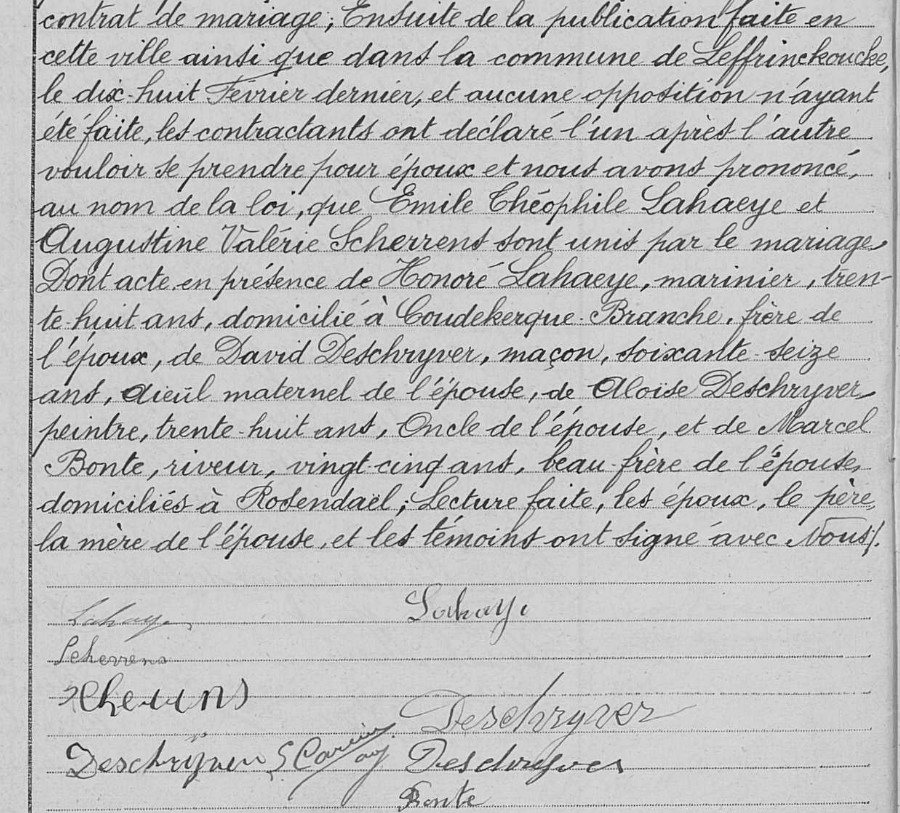 contrat de mariage; Ensuite de la publication faite en
cette ville ainsi que dans la commune de Leffrinckoucke,
le dix-huit Fevrier dernier, et aucune opposition n'ayant
été faite, les contractants ont déclaré l'un après l'autre
vouloir se prendre pour époux et nous avons prononcé,
au nom de la loi, que Emile Théophile Lahaeye et
Augustine Valérie Scherrens sont unis par le mariage
Dont acte en présence de Honoré Lahaeye, marinier, tren-
te-huit ans, domicilié à Coudekerque-Branche, frère de
l'époux, de David Deschryver, maçon, soixante-seize
ans, aïeul maternel de l'épouse, de Aloïse Deschryver,
peintre, trente-huit ans, Oncle de l'épouse, et de Marcel
Bonte, riveur, vingt-cinq ans, beau-frère de l'épouse,
domiciliés à Rosendaël; Lecture faite, les époux, le père,
la mère de l'épouse, et les témoins ont signé avec Nous/.
Lahaye Lahaye
Scherrens
Scherrens
Deschryver
Deschryver Deschryver
Bonte